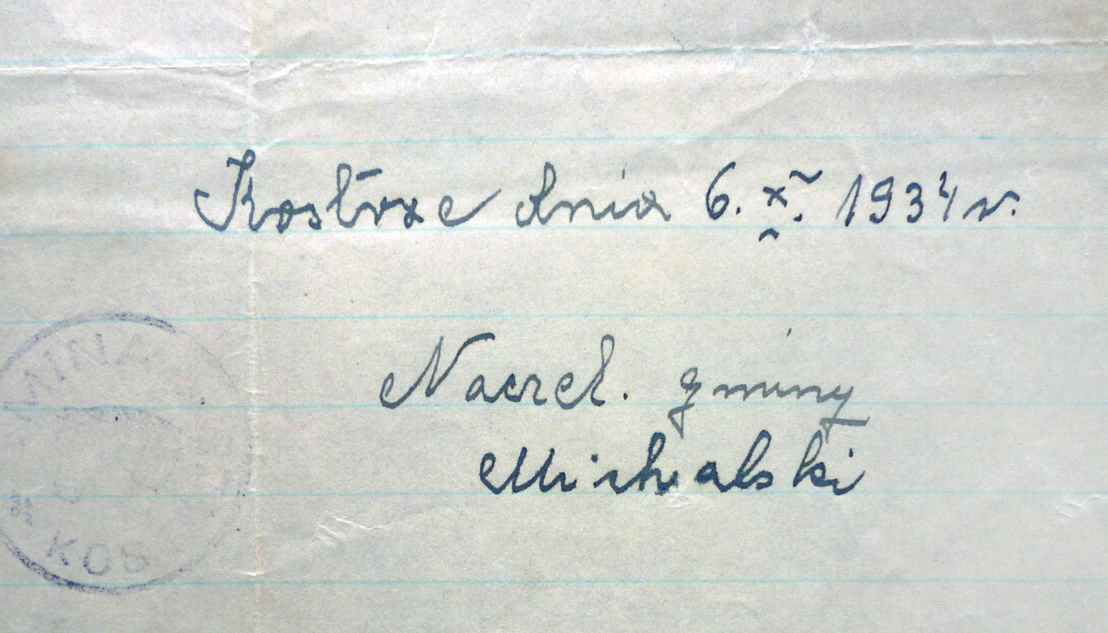 Kostrze dnia 6. X. 1934 r.
Naczel. gminy
Michalski
GMINA
KOS